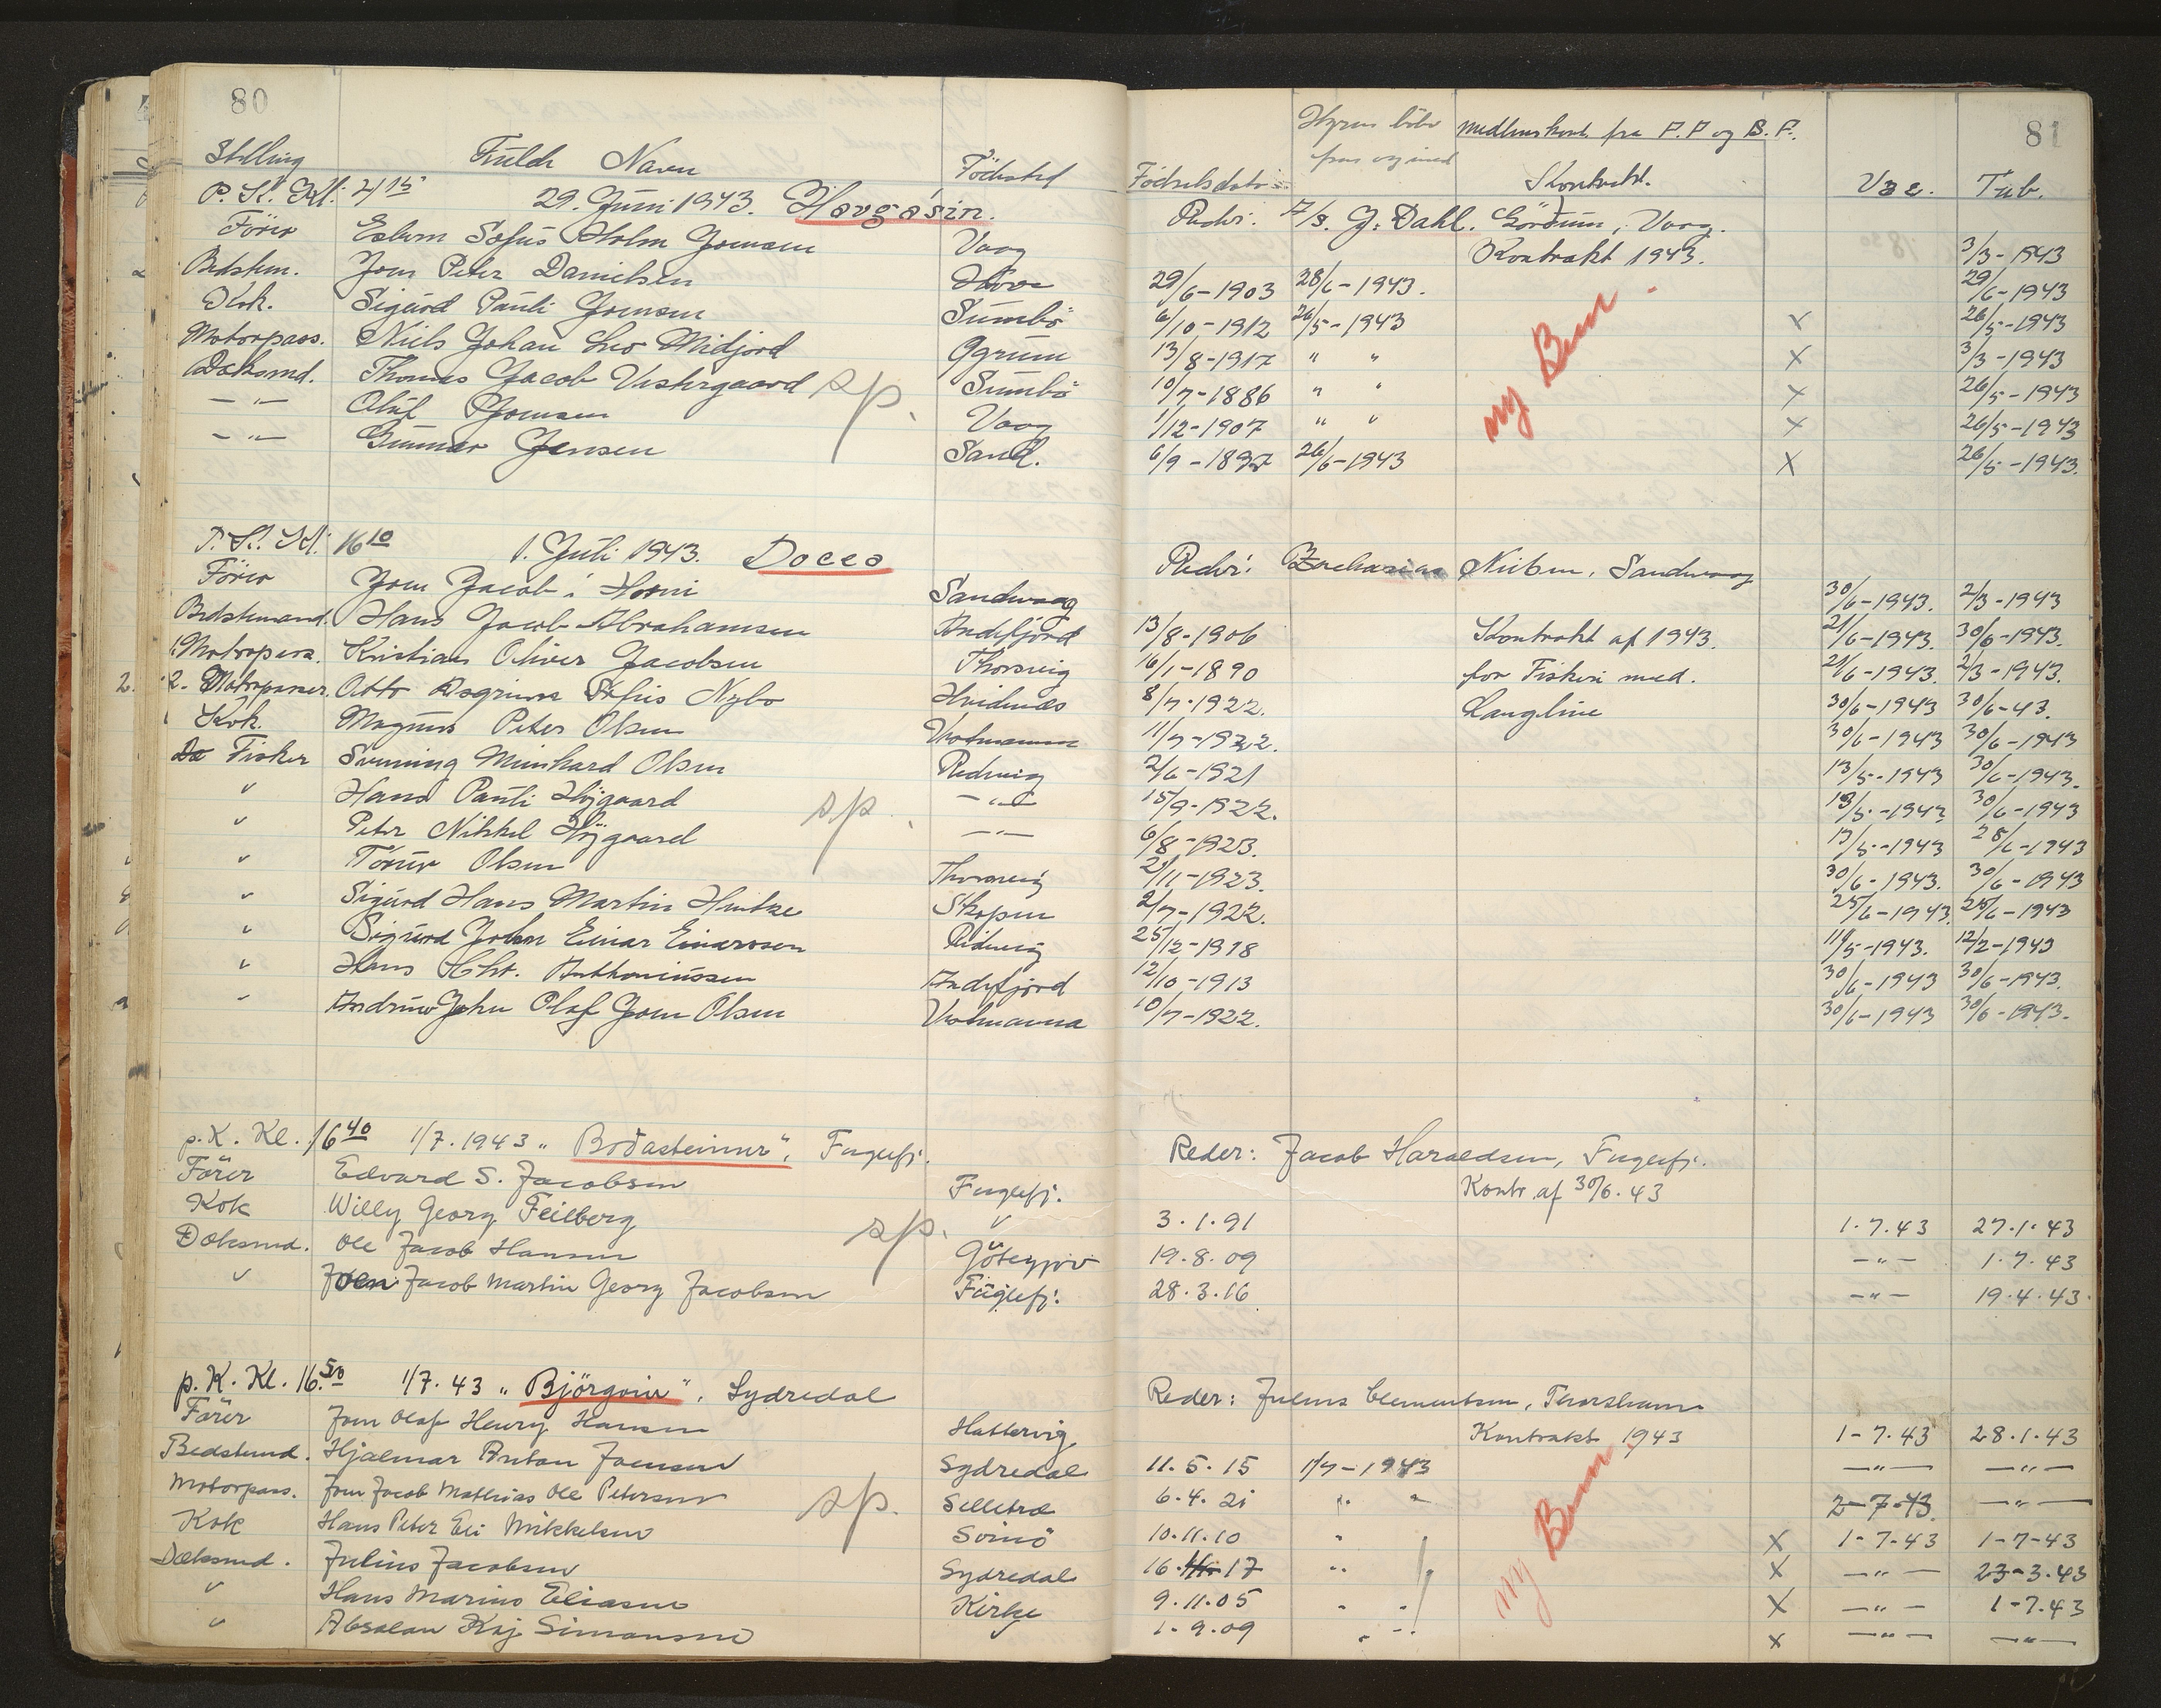 80
81
Stilling Fulde Navn Födested Födselsdato Hyres fra og med Medlemskort fra P.P og B.F. Kontrakt. Vac. Tub.
P.K. Kl. 21 15 29. Juni 1943. Havgásin. Reder: A/S. J. Dahl. Vaag.
Förer Esbern Sofus Holm Joensen Vaag Kontrakt 1943. 3/3-1943
Bedstem. Joen Peter Danielsen Hove 29/6-1903 28/6-1943. 29/6-1943
Kok. Sigurd Pauli Joensen Sumbö 6/10-1912 26/5-1943 X 26/5-1943
Motorpass. Niels Johan Leo Midjord Ögrum 13/8-1917 " " X 3/3-1943
Dæksmd. Thomas Jacob Vestergaard Sumbö 10/7-1886 " " X 26/5-1943
-"- Oluf Joensen Vaag 1/12-1907 " " X 26/5-1943
-"- Gunnar Jensen Sand. 6/9-1897 26/6-1943 X 26/5-1943.
sp.
ny Bem.
P.K. Kl. 16 10 1. Juli 1943. Docea Reder: Zacharias Nielsen, Sandvaag
Förer Joen Jacob í Horni Sandvaag 30/6-1943. 2/3-1943
Bedstemand. Hans Jacob Abrahamsen Andefjord 13/8-1906 Kontrakt af 1943. 21/6-1943. 30/6-1943.
1. Motorpass. Kristian Oliver Jacobsen Thorsvig 16/1-1890 for Fiskeri med. 21/6-1943. 2/3-1943.
2. 2. Motorpasser. Otto Dagrunn Sofus Nybo Hvidenæs 8/7-1922. Langline 30/6-1943 30/6-43.
Kok. Magnus Peter Olsen Vestmanna 11/7-1922. 30/6-1943 30/6-1943
Fisker Svenning Meinhard Olsen Redevig 2/6-1921 13/5-1943 30/6-1943.
" Hans Pauli Höjgaard -"- 15/9-1922. 13/5-1943 30/6-1943
" Peter Nikkel Höjgaard -"- 6/8-1923. 13/5-1943 28/6-1943
" Tórur Olsen Thorsvig 2/11-1923. 30/6-1943. 30/6-1943
" Sigurd Hans Martin Hentze Skopun 2/7-1922. 25/6-1943 25/6-1943
" Sigurd John Einar Einarssen Ridevig 25/12-1918 11/5-1943. 12/2-1943
" Hans Chr. Anthoniussen Andefjord 12/10-1913 30/6-1943 30/6-1943.
" Andreas John Olaf Joen Olsen Vestmanna 10/7-1922. 30/6-1943 30/6-1943.
sp.
p.K. Kl. 16 40 1/7.1943 "Boðasteinur", Fuglefj. Reder: Jacob Haraldsen, Fuglefj.
Förer Edvard S. Jacobsen Fuglefj. Kontr. af 30/6.43
Kok Willy Georg Feilberg " 3.1.91 1.7.43 27.1.43
Dæksmd. Ole Jacob Hansen Götegjov 19.8.09 -"- 1.7.43
" Joen Jacob Martin Georg Jacobsen Fuglefj. 28.3.16 -"- 19.4.43.
sp.
p.K. Kl. 16.50 1/7.43 "Björgvin", Sydredal Reder: Julius Clementsen, Thorshavn
Förer Joen Olaf Henry Hansen Hattervig Kontrakt 1943 1-7.43 28.1.43
Bedstemd. Hjalmar Anton Joensen Sydredal 11.5.15 1/7-1943 -"- -"-
Motorpass. Joen Jacob Mathias Ole Petersen Selletræ 6.4.21 " " 2-7-43. -"-
Kok Hans Peter Eli Mikkelsen Svinö 10.11.10 " X 1-7-43 1-7-43
Dæksmd. Julius Jacobsen Sydredal 16. 17 " X -"- 23-3.43
" Hans Marius Eliasen Kirke 9.11.05 " " X -"- 1-7.43
" Absalon Kaj Simonsen " 1-9.09 " " X -"- -"-
sp.
ny Bem.